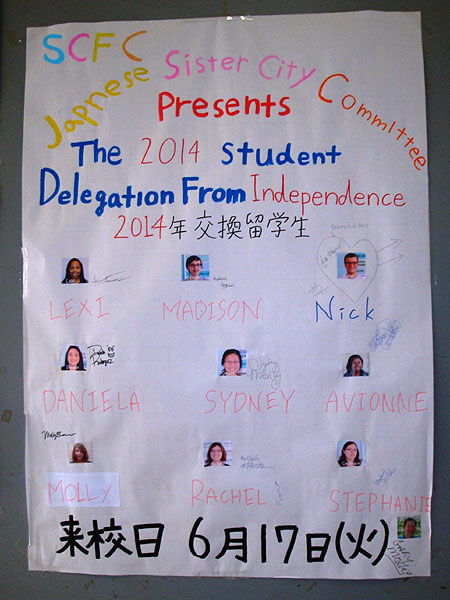 SCFC
Japnese Sister City Committee
Presents
The 2014 Student
Delegation From Independence
2014年交換留学生
LEXI MADISON Nick
DANIELA SYDNEY AVIONNE
MOLLY RACHEL STEPHANIE
来校日 6月17日(火)